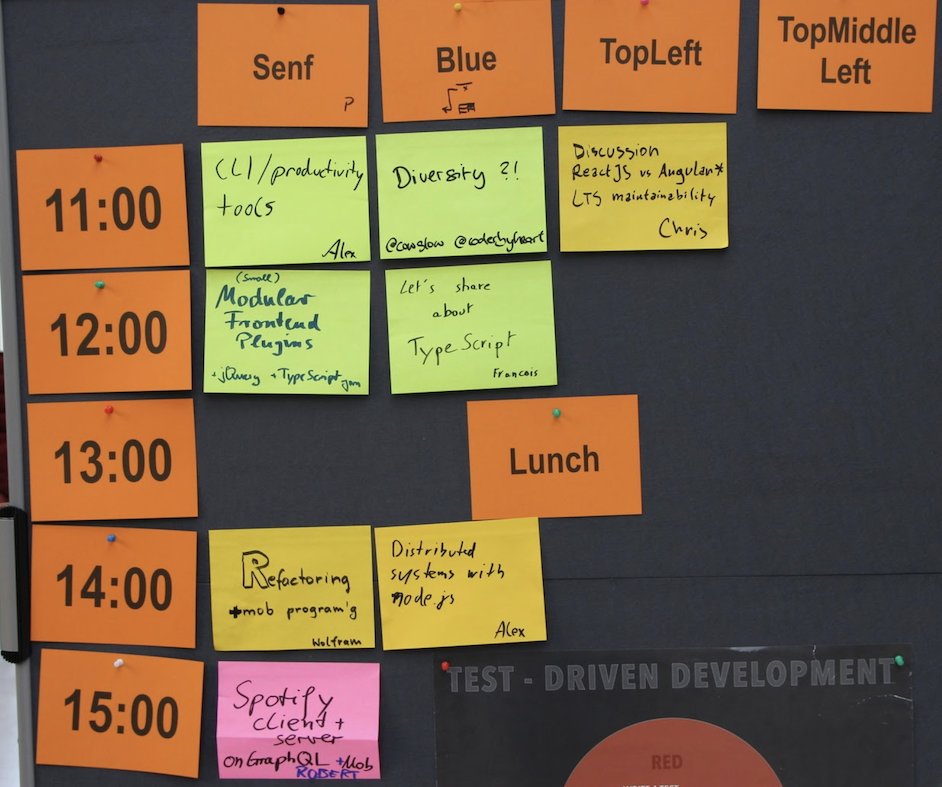 Senf
P
Blue
TopLeft
TopMiddle
Left
11:00
CLI/productivity
tools
Alex
Diversity ?!
@cowglow @coderbyheart
Discussion
ReactJS vs Angular*
LTS maintainability
Chris
12:00
(small)
Modular
Frontend
Plugins
+jQuery +TypeScript
Let's share
about
TypeScript
Francois
13:00
Lunch
14:00
Refactoring
+mob program'g
Wolfram
Distributed
systems with
node.js
Alex
15:00
Spotify
client +
server
on GraphQL +Mob
ROBERT
TEST - DRIVEN DEVELOPMENT
RED